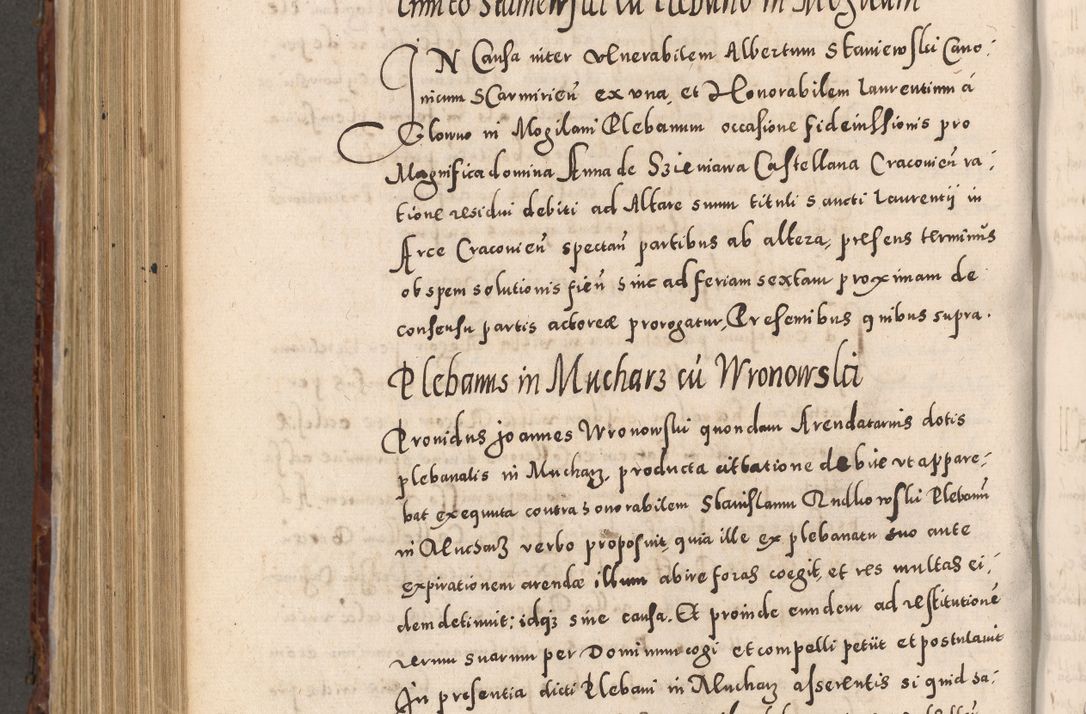 Staniewski cū Plebano in Mogilani
IN Causa inter Venerabilem Albertum Staniewski Cano-
nicum SCarmirień ex una, et Honorabilem Laurentium á
Clowno in Mogilani Plebanum occasione fideiussionis pro
Magnifica domina Anna de Szieniawa Castellana Cracovień ra-
tione residui debiti ad Altare suum tituli Sancti Laurentij in
Arce Cracovień spectań partibus ab altera, presens terminus
ob spem solutionis fień sinc ad feriam sextam proximam de
consensu partis actoreæ prorogatur, Presentibus quibus supra.
Plebanus in Mucharz cū Wronowski
Providus Joannes Wronowski quondam Arendatarius dotis
plebanalis in Mucharz, producta citatione debite ut appare-
bat exequuta contra honorabilem Stanislaum Rudkowski Plebanū
in Mucharz verbo proposuit, quia ille ex plebanatu suo ante
expirationem arendæ illum abire foras coegit, et res multas ei-
dem detinuit: idqз sine causa. Et proinde eundem ad restitutionē
rerum suarum per Dominum cogi et compelli petiit et postulavit
In presentia dicti Plebani in Mucharz asserentis si quid sa-